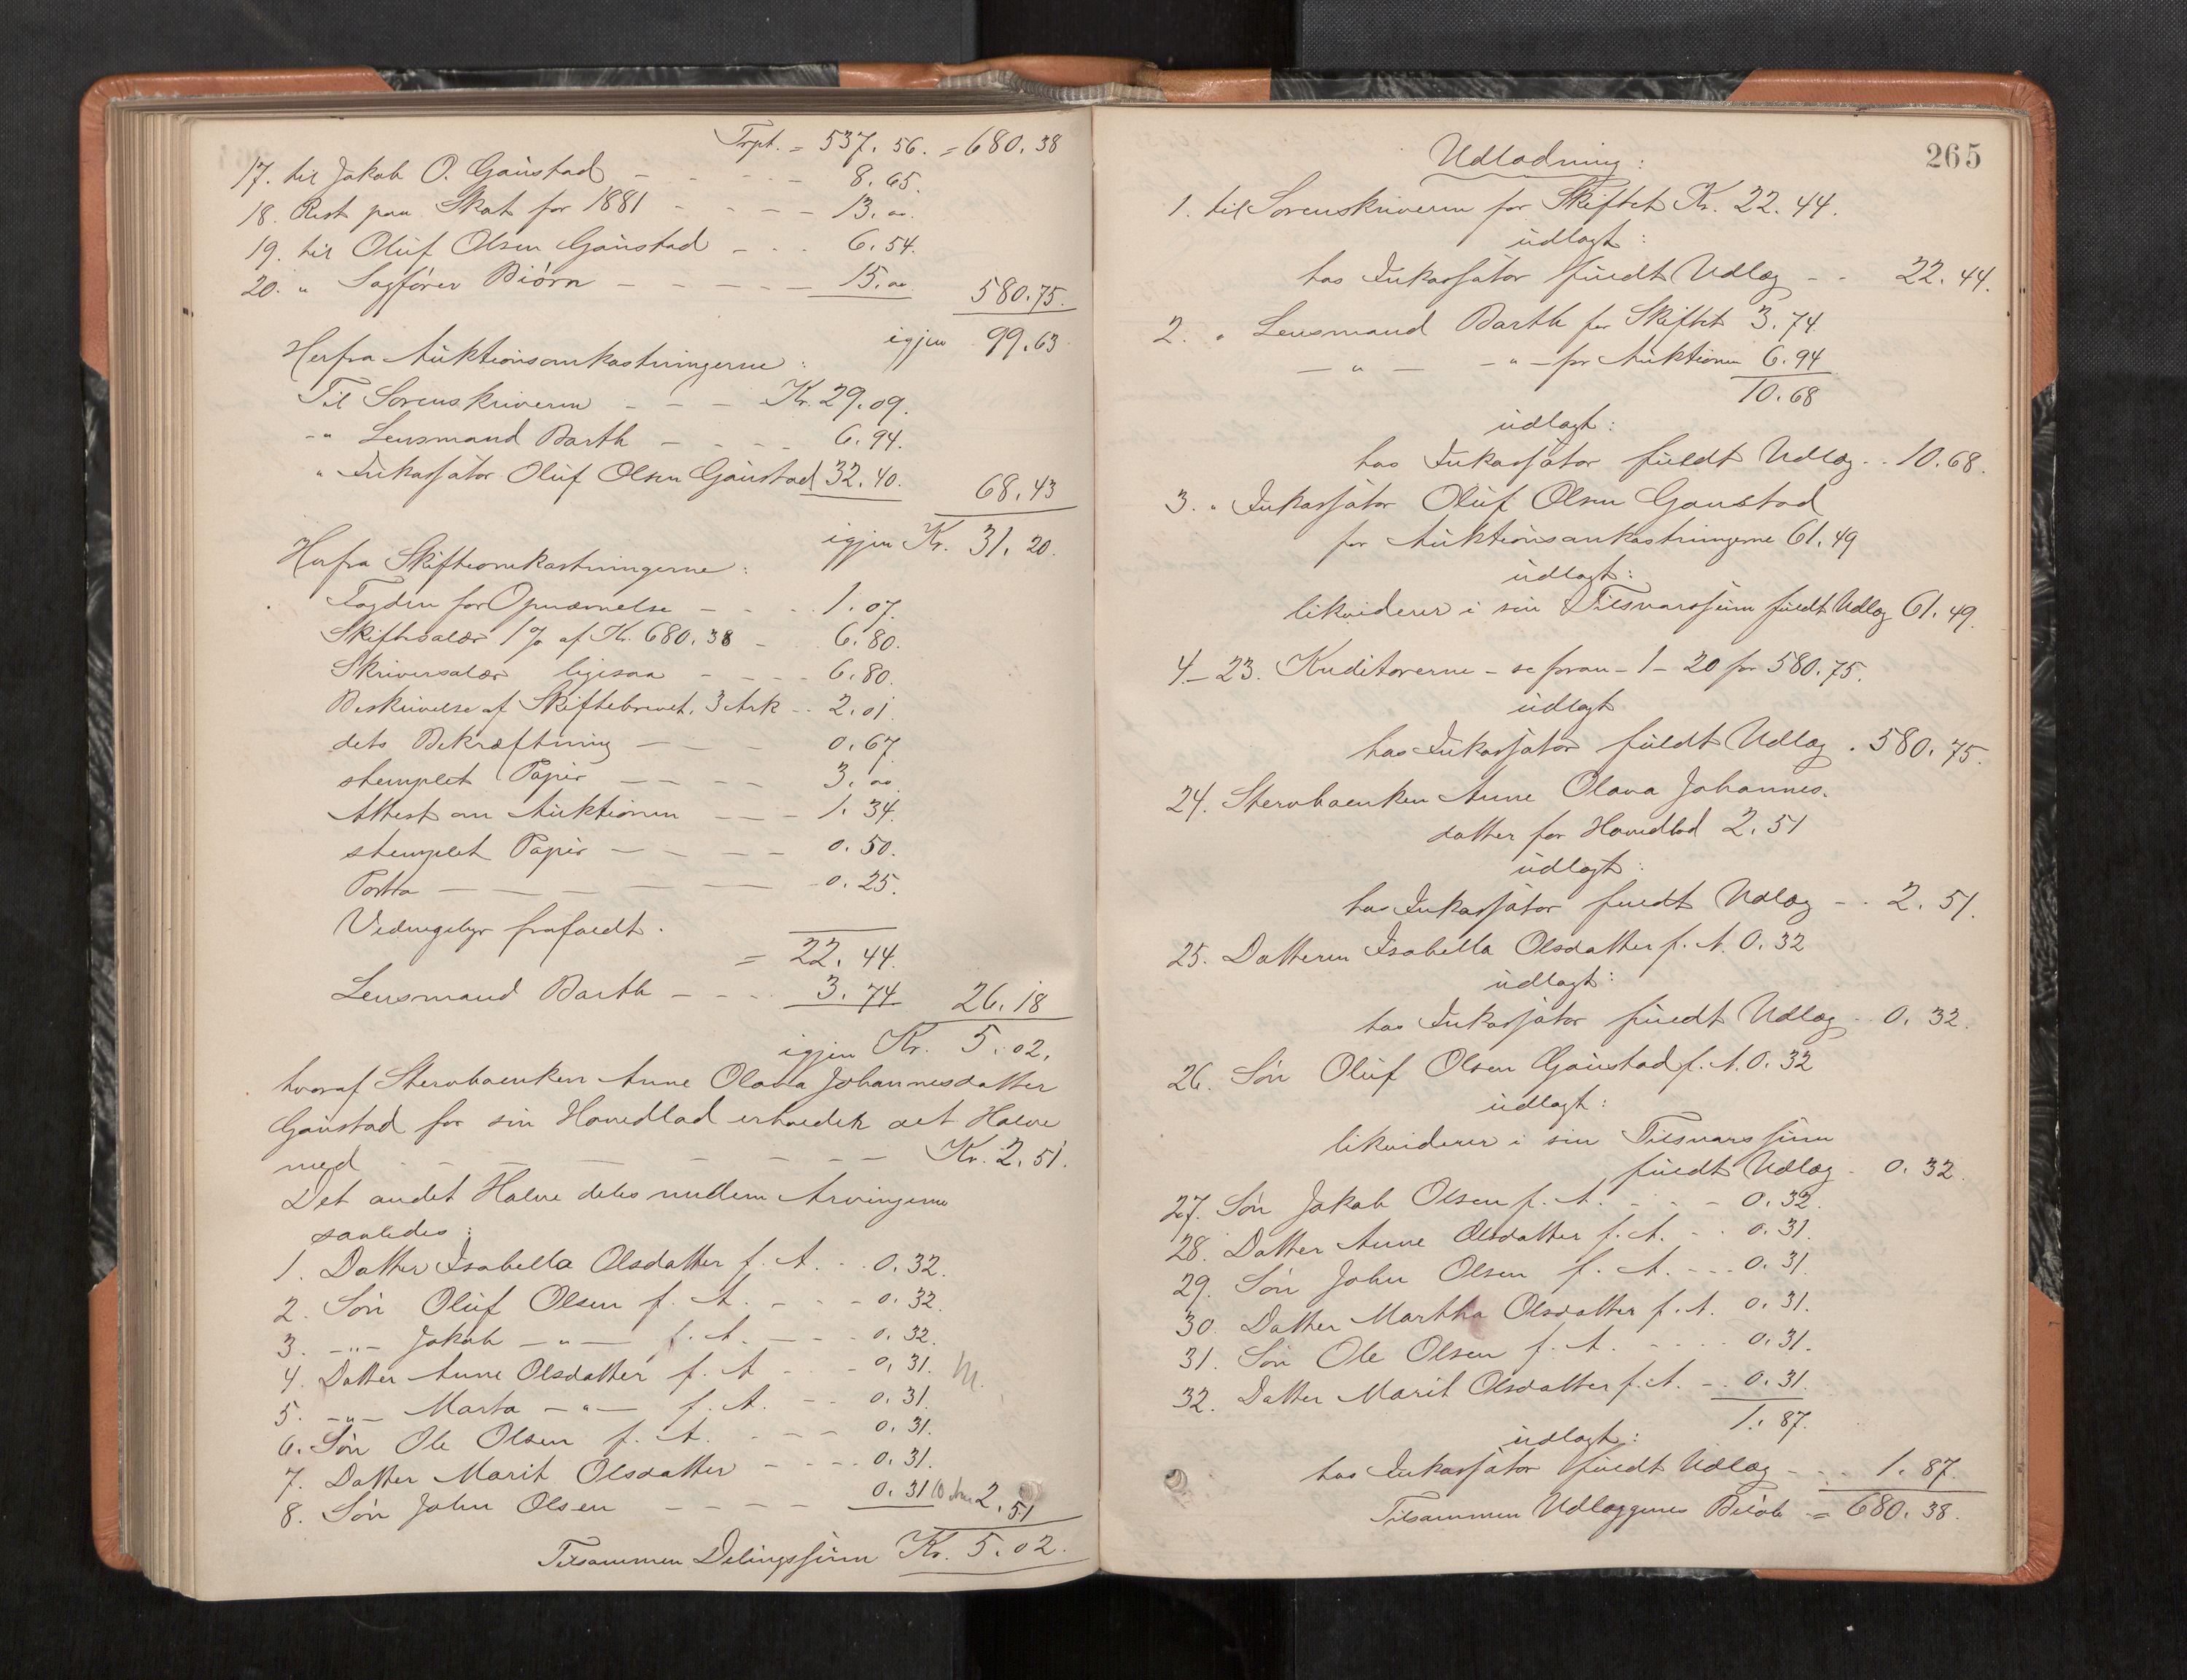 Trpt. = 537. 56. = 680. 38
17. til Jakob O. Gaustad - - - - - 8. 65.
18. Rest paa Skat for 1881 - - - - 13. "
19. til Oluf Olsen Gaustad - - - 6. 54.
20. " Sagfører Biørn - - - - - 15. " 580. 75.
igjen 99. 63
Herfra Auktionsomkostningerne:
Til Sorenskriveren - - - Kr. 29. 09.
-" Lensmand Barth - - - - 6. 94.
" Inkassator Oluf Olsen Gaustad 32. 40. 68. 43
igjen Kr. 31. 20.
Herfra Skifteomkostningerne:
Fogden for Opnævnelse - - - 1. 07.
Skiftesalær 1 % af Kr. 680. 38 - 6. 80.
Skriversalær ligesaa - - - - 6. 80.
Beskrivelse af Skiftebrevet, 3 Ark - - 2. 01.
dets Bekræftning - - - 0. 67
stemplet Papir - - - - 3. "
Attest om Auktionen - - - 1. 34.
stemplet Papir - - - - - 0. 50.
Porto - - - - - - 0. 25.
frafaldt.
= 22. 44.
Lensmand Barth - - - 3. 74 26. 18
igjen Kr. 5. 02.
hvoraf Stervboenken Anne Olava Johannesdatter
Gaustad for sin Hovedlod erholder det Halve
med - - - - - - - Kr. 2. 51.
Det andet Halve deles mellem Arvingerne
saaledes:
1. Datter Isabella Olsdatter f. A. - - 0. 32.
2. Søn Oluf Olsen f. A. - - - 0. 32.
3. -"- Jakob -"- f. A. - - - 0. 32.
4. Datter Anne Olsdatter f. A - - 0. 31. M.
5. -"- Marta -"- f. A. - - 0. 31.
6. Søn Ole Olsen f. A. - - - 0. 31.
7. Datter Marit Olsdatter - - - - 0. 31.
8. Søn John Olsen - - - - 0. 31 2. 51
Tilsammen Delingssum Kr. 5. 02.
265
Udlodning:
1. til Sorenskriveren for Skiftet Kr. 22. 44.
udlagt:
hos Inkassator fuldt Udlæg - - 22. 44.
2. " Lensmand Barth for Skiftet 3. 74
- " - -"- for Auktionen 6. 94
10. 68
udlagt:
hos Inkassator fuldt Udlæg - - 10. 68.
3. " Inkassator Oluf Olsen Gaustad
for Auktionsomkostningerne 61. 49
udlagt:
likviderer i sin Tilsvarssum fuldt Udlæg 61. 49.
4 - 23. Kreditorerne - se foran - 1 - 20 for 580. 75.
udlagt
hos Inkassator fuldt Udlæg . 580. 75.
24. Stervboenken Anne Olava Johannes-
datter for Hovedlod 2. 51
udlagt:
hos Inkassator fuldt Udlæg - - 2. 51.
25. Datteren Isabella Olsdatter f. A. 0. 32
udlagt:
hos Inkassator fuldt Udlæg - - 0. 32.
26. Søn Oluf Olsen Gaustad f. A. 0. 32
udlagt:
likviderer i sin Tilsvarssum
fuldt Udlæg - 0. 32.
27. Søn Jakob Olsen f. A. - - - 0. 32.
28. Datter Anne Olsdatter f. A. - - 0. 31.
29. Søn John Olsen f. A. - - - 0. 31.
30. Datter Martha Olsdatter f. A. 0. 31.
31. Søn Ole Olsen f. A. - - - - 0. 31.
32. Datter Marit Olsdatter f. A. - - 0. 31.
1. 87.
udlagt:
hos Inkassator fuldt Udlæg - - - 1. 87.
Tilsammen Udlæggenes Beløb - = 680. 38.